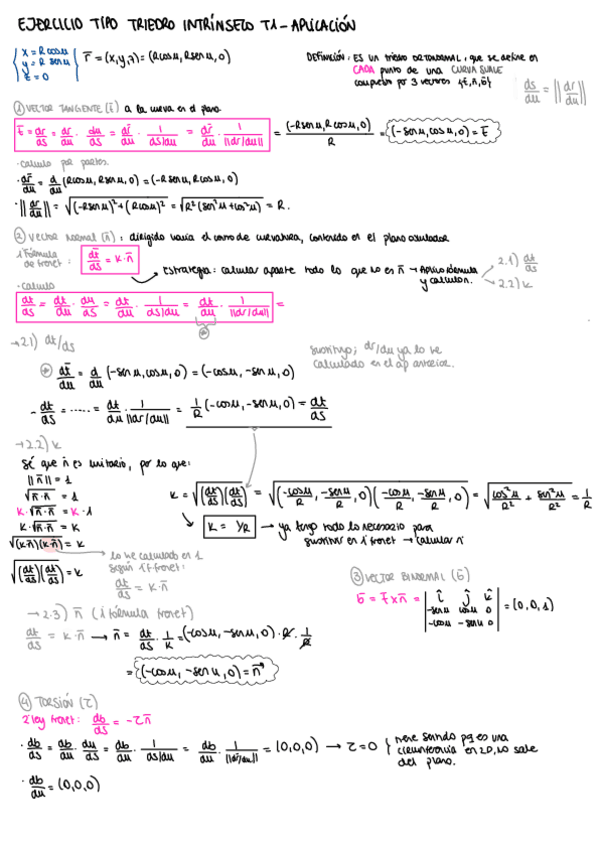 EJERCICIO TIPO TRIEDRO INTRÍNSECO T1 - APLICACIÓN
x = R cosu
y = R senu
z = 0
r̄ = (x,y,z) = (Rcosu, Rsenu, 0)
Definición: ES UN triedro ORTONORMAL, que se define en
CADA punto de una CURVA SUAVE
compuesto por 3 vectores {t̄, n̄, b̄}
ds/du = ||dr̄/du||
① VECTOR TANGENTE (t̄) a la curva en el plano
t̄ = dr̄/ds = dr̄/du · du/ds = dr̄/du · 1/ds/du = dr̄/du · 1/||dr/du|| = (-Rsenu, Rcosu, 0)/R = (-senu, cosu, 0) = t̄
· calculo por partes.
· dr̄/du = d/du (Rcosu, Rsenu, 0) = (-Rsenu, Rcosu, 0)
· ||dr̄/du|| = √(-Rsenu)² + (Rcosu)² = √R²(sen²u + cos²u) = R.
② Vector normal (n̄): dirigido hacia el centro de curvatura, contenido en el plano osculador
1ª fórmula de frenet: dt̄/ds = K · n̄
Estrategia: calcular aparte todo lo que no es n̄ → Aplico fórmula y calculo n.
2.1) dt̄/ds
2.2) K
· calculo
dt/ds = dt/du · du/ds = dt/du · 1/ds/du = dt/du · 1/||dr/du|| =
→ 2.1) dt/ds
⊛ dt̄/du = d/du (-senu, cosu, 0) = (-cosu, -senu, 0)
sustituyo; dr/du ya lo he
calculado en el ap anterior.
- dt/ds = ..... = dt/du · 1/||dr/du|| = 1/R (-cosu, -senu, 0) = dt/ds
→ 2.2) K
Sé que n̄ es unitario, por lo que:
||n̄|| = 1
√n̄·n̄ = 1
K·√n̄·n̄ = K·1
K·√n̄·n̄ = K
√(K·n̄)(K·n̄) = K
√(dt/ds)(dt/ds) = K
K = √(dt/ds)(dt/ds) = √(-cosu/R, -senu/R, 0)(-cosu/R, -senu/R, 0) = √cos²u/R² + sen²u/R² = 1/R
K = 1/R → ya tengo todo lo necesario para
sustituir en 1ª frenet → calcular n̄
lo he calculado en 1
según 1ª f frenet:
dt/ds = K · n̄
→ 2.3) n̄ (1 fórmula frenet)
dt/ds = K · n̄ → n̄ = dt/ds · 1/K = (-cosu, -senu, 0) · R · 1/R
= (-cosu, -senu, 0) = n̄
③ VECTOR BINORMAL (b̄)
b̄ = t̄ x n̄ = | î ĵ k̂
-senu cosu 0
-cosu -senu 0 | = (0,0,1)
④ TORSIÓN (τ)
2ª ley frenet: db/ds = -τ n̄
· db/ds = db/du · du/ds = db/du · 1/ds/du = db/du · 1/||dr/du|| = (0,0,0) → τ = 0
tiene sentido pq es una
circunferencia en 2D, no sale
del plano.
· db/du = (0,0,0)